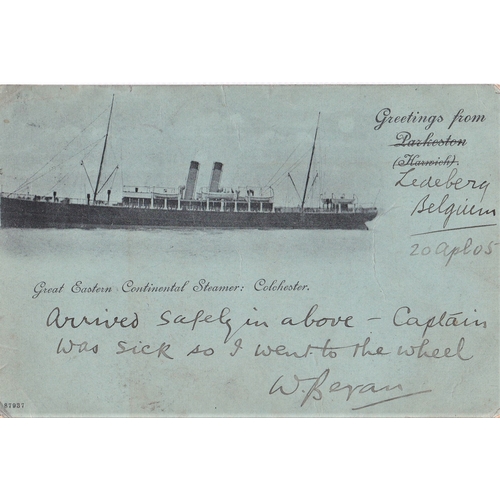 Greetings from
Parkeston
(Harwich).
Ledeberg
Belgium
20 Apl 05
Great Eastern Continental Steamer: Colchester.
Arrived safely in above – Captain
was sick so I went to the wheel
W. Bevan
87957